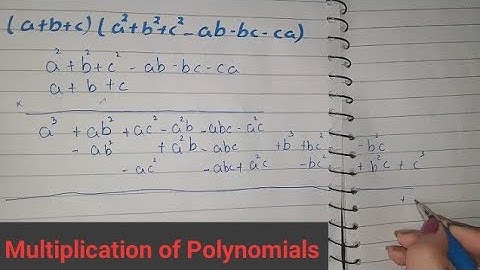 (a+b+c) (a²+b²+c²-ab-bc-ca)
a²+b²+c²-ab-bc-ca
a + b + c
×
a³ + ab² + ac² - a²b - abc - a²c
- ab² + a²b - abc + b³ + bc² - b²c
- ac² - abc + a²c - bc² + b²c + c³
+
Multiplication of Polynomials